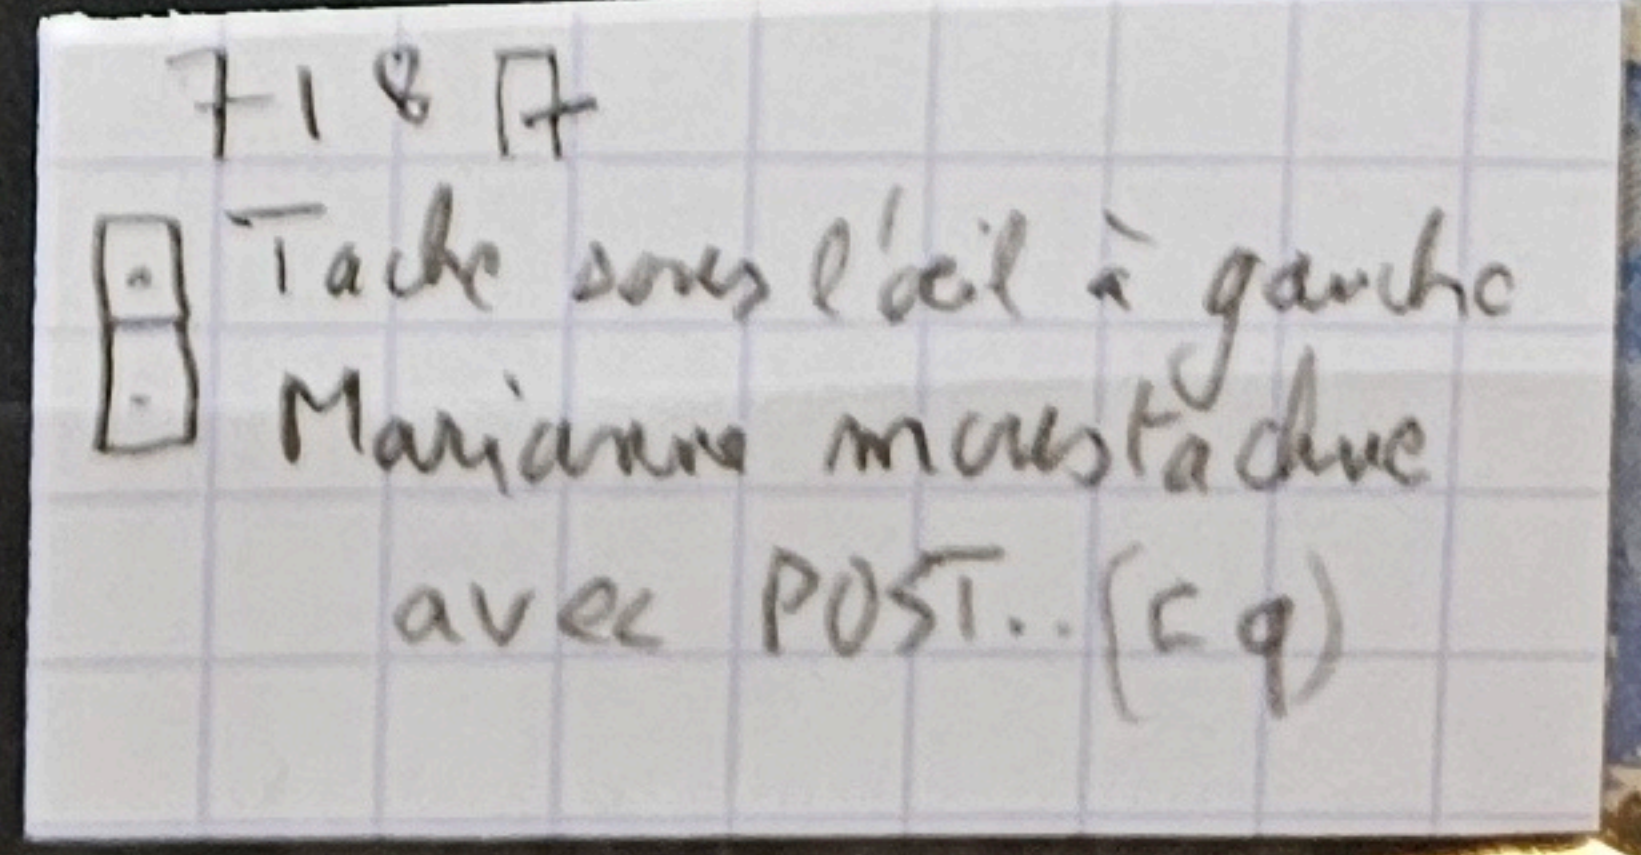 718 A
Tache sous l'œil à gauche
Marianne moustachue
avec POST.. (cq)